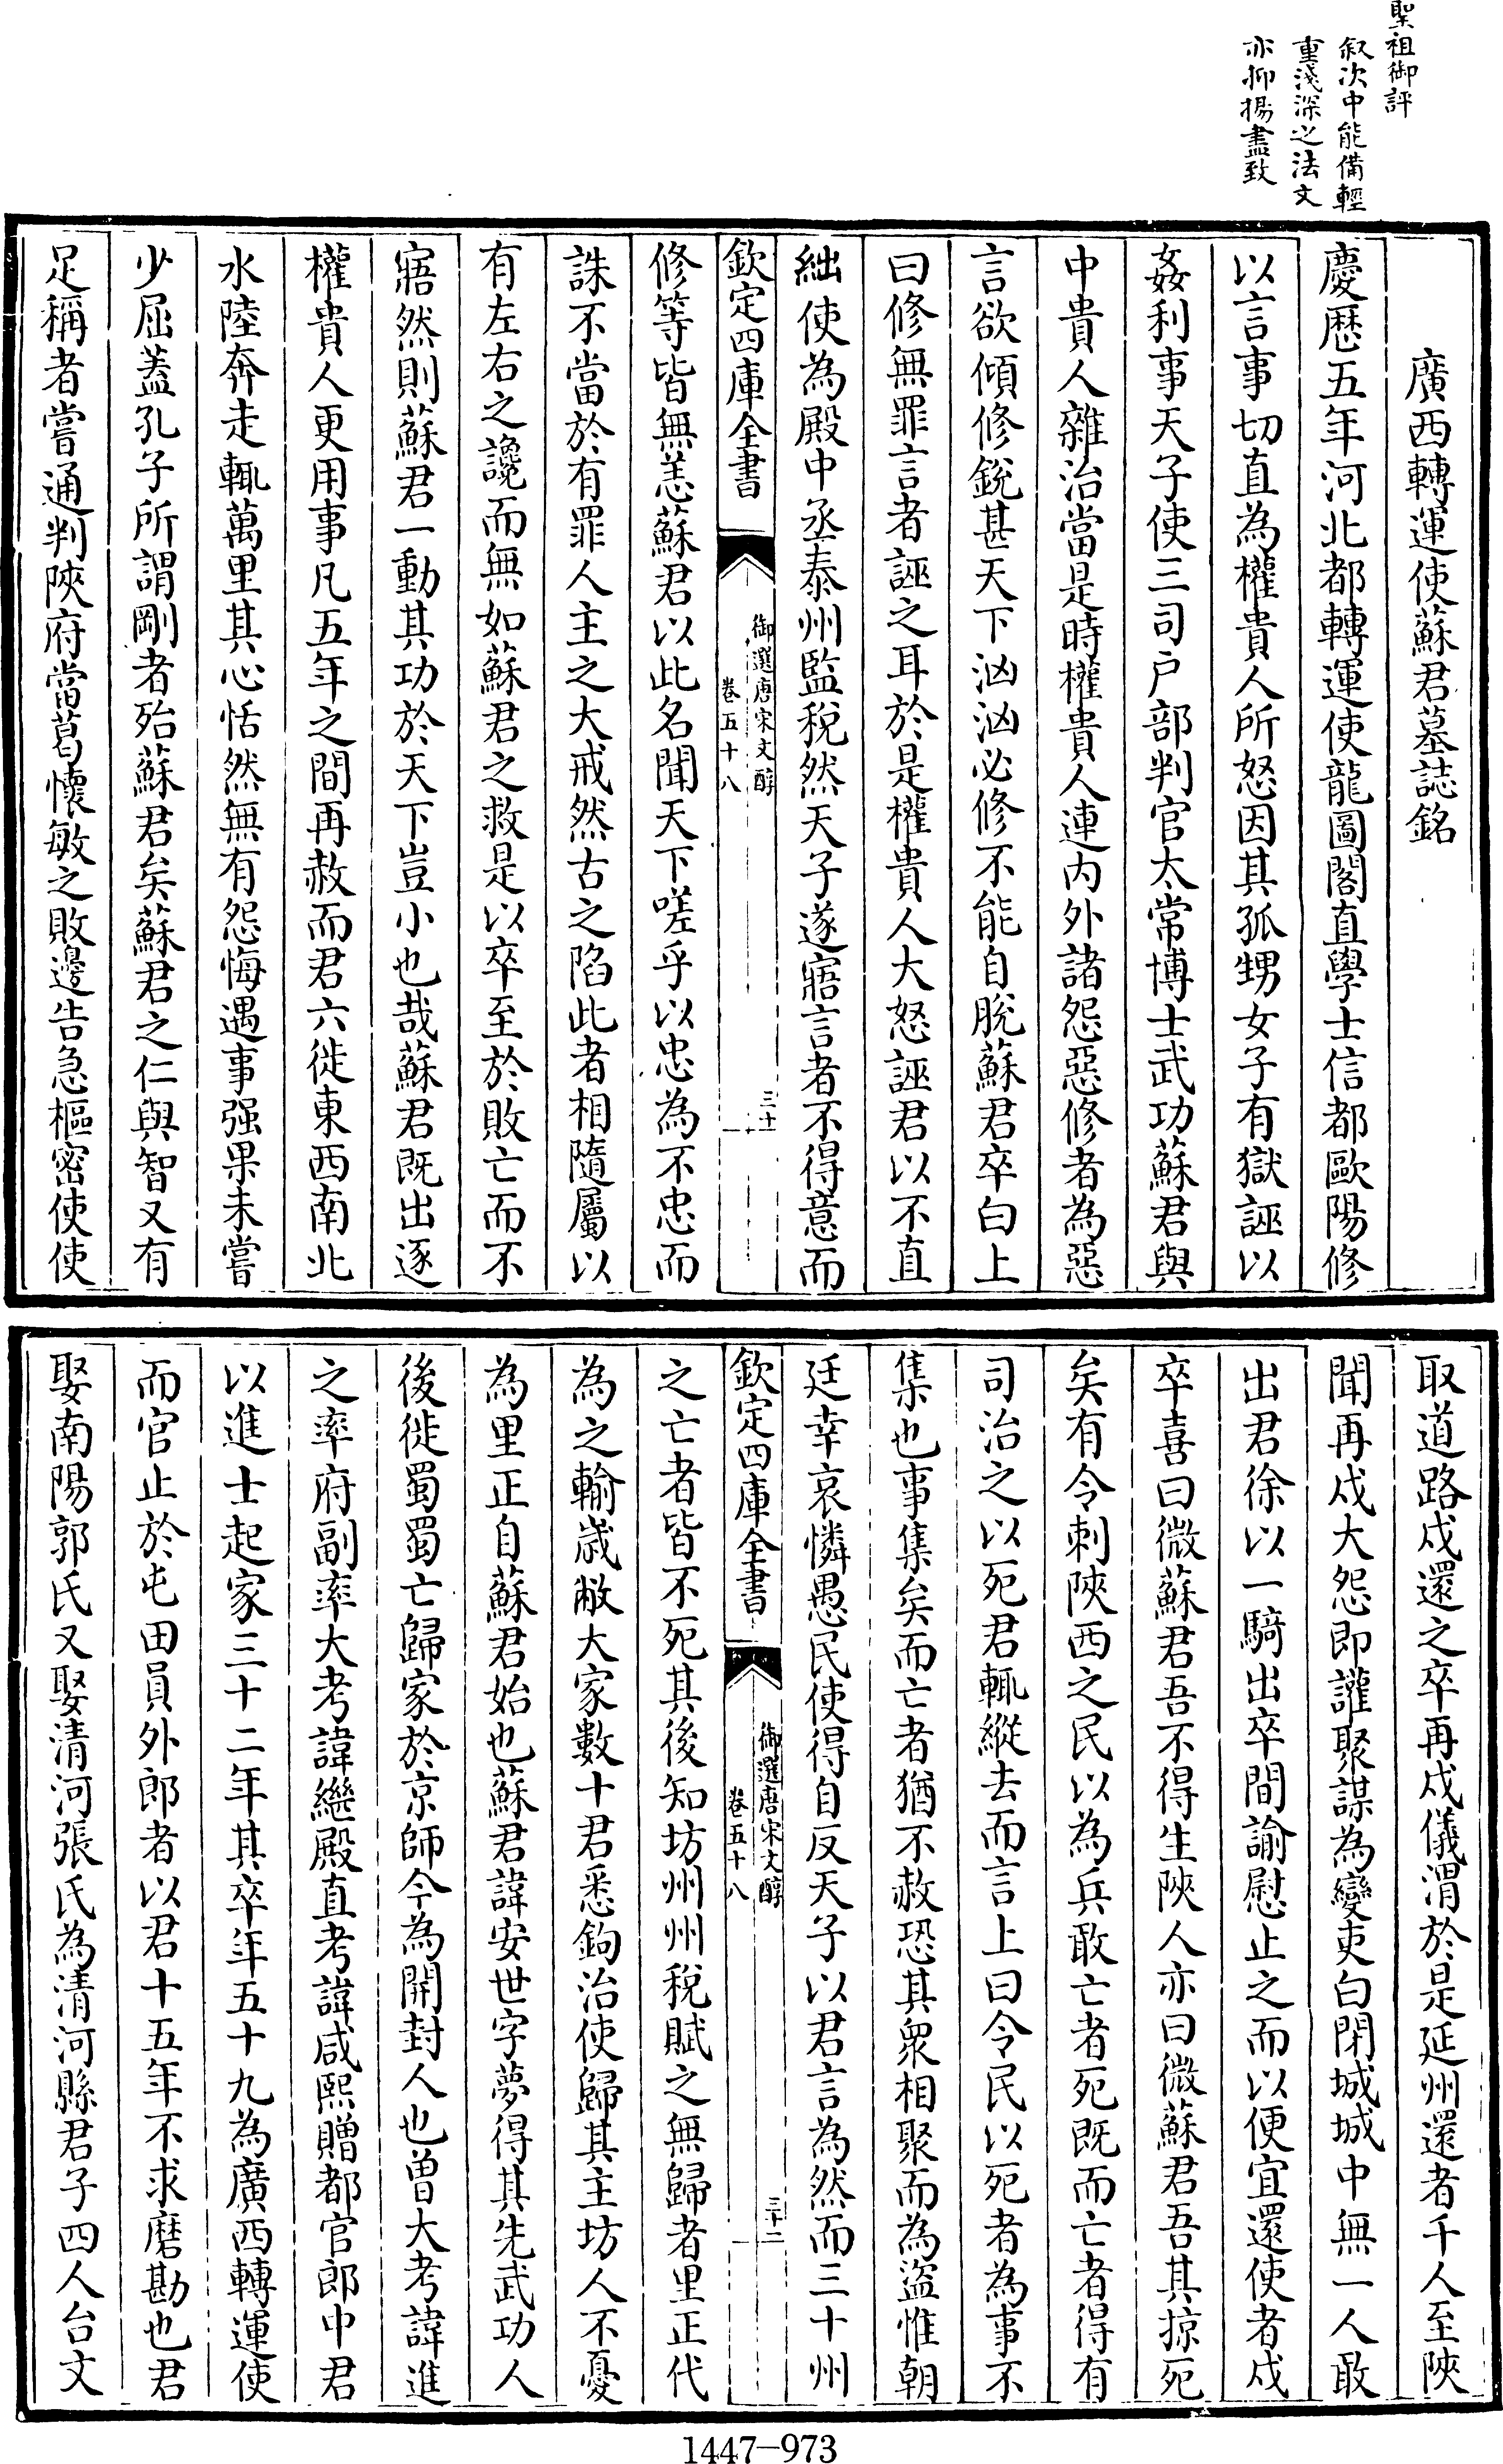 聖祖御評
叙次中能備輕
重淺深之法文
亦抑揚盡致
廣西轉運使蘇君墓誌銘
慶厯五年河北都轉運使龍圖閣直學士信都歐陽修
以言事切直為權貴人所怒因其孤甥女子有獄誣以
姦利事天子使三司户部判官太常博士武功蘇君與
中貴人雜治當是時權貴人連内外諸怨惡修者為惡
言欲傾修銳甚天下洶洶必修不能自脫蘇君卒白上
曰修無罪言者誣之耳於是權貴人大怒誣君以不直
絀使為殿中丞泰州監稅然天子遂寤言者不得意而
欽定四庫全書
御選唐宋文醇
卷五十八
三十一
修等皆無恙蘇君以此名聞天下嗟乎以忠為不忠而
誅不當於有罪人主之大戒然古之陷此者相隨屬以
有左右之讒而無如蘇君之救是以卒至於敗亡而不
寤然則蘇君一動其功於天下豈小也哉蘇君既出逐
權貴人更用事凡五年之間再赦而君六徙東西南北
水陸奔走輒萬里其心恬然無有怨悔遇事强果未嘗
少屈蓋孔子所謂剛者殆蘇君矣蘇君之仁與智又有
足稱者嘗通判陜府當葛懷敏之敗邊告急樞密使使
取道路戍還之卒再戍儀渭於是延州還者千人至陜
聞再戍大怨即讙聚謀為變吏白閉城城中無一人敢
出君徐以一騎出卒間諭慰止之而以便宜還使者戍
卒喜曰微蘇君吾不得生陜人亦曰微蘇君吾其掠死
矣有令刺陜西之民以為兵敢亡者死既而亡者得有
司治之以死君輒縱去而言上曰令民以死者為事不
集也事集矣而亡者猶不赦恐其衆相聚而為盜惟朝
廷幸哀憐愚民使得自反天子以君言為然而三十州
欽定四庫全書
御選唐宋文醇
卷五十八
三十二
之亡者皆不死其後知坊州州稅賦之無歸者里正代
為之輸歲敝大家數十君悉鉤治使歸其主坊人不憂
為里正自蘇君始也蘇君諱安世字夢得其先武功人
後徙蜀蜀亡歸家於京師今為開封人也曾大考諱進
之率府副率大考諱繼殿直考諱咸熙贈都官郎中君
以進士起家三十二年其卒年五十九為廣西轉運使
而官止於屯田員外郎者以君十五年不求磨勘也君
娶南陽郭氏又娶清河張氏為清河縣君子四人台文
1447—973